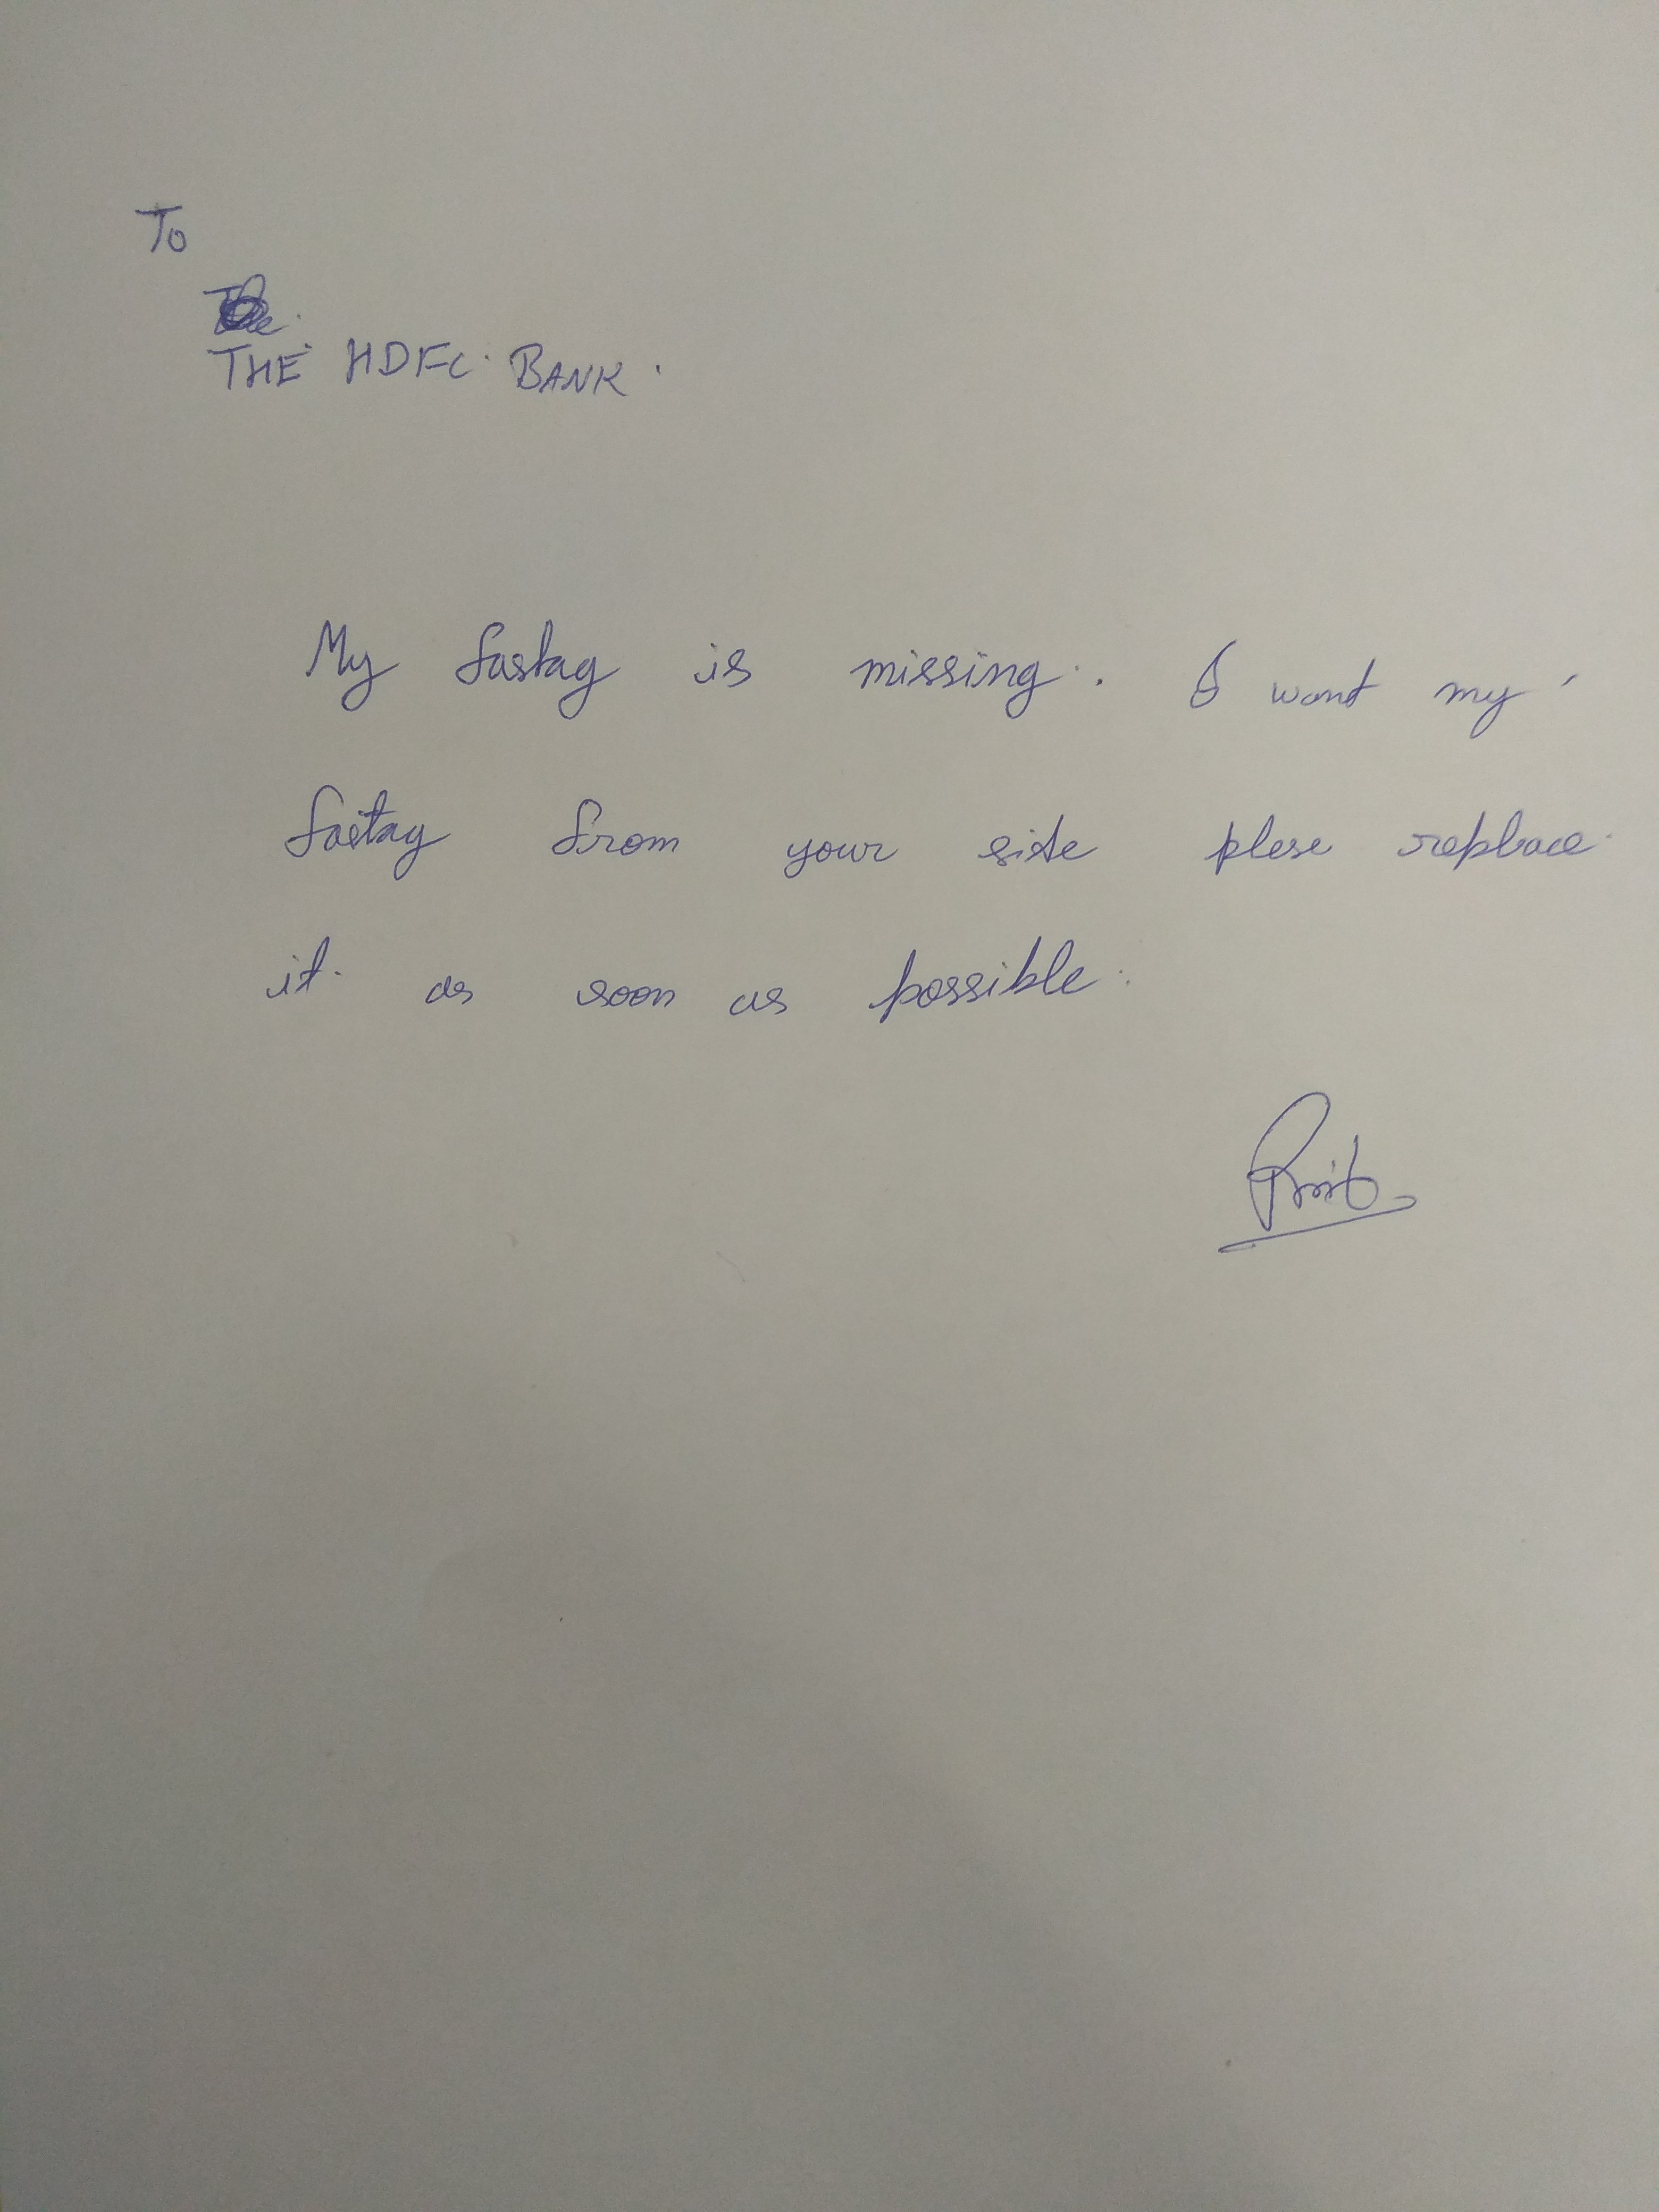 To
THE HDFC BANK.
My fastag is missing. I want my
fastag from your site plese replace
it as soon as possible.